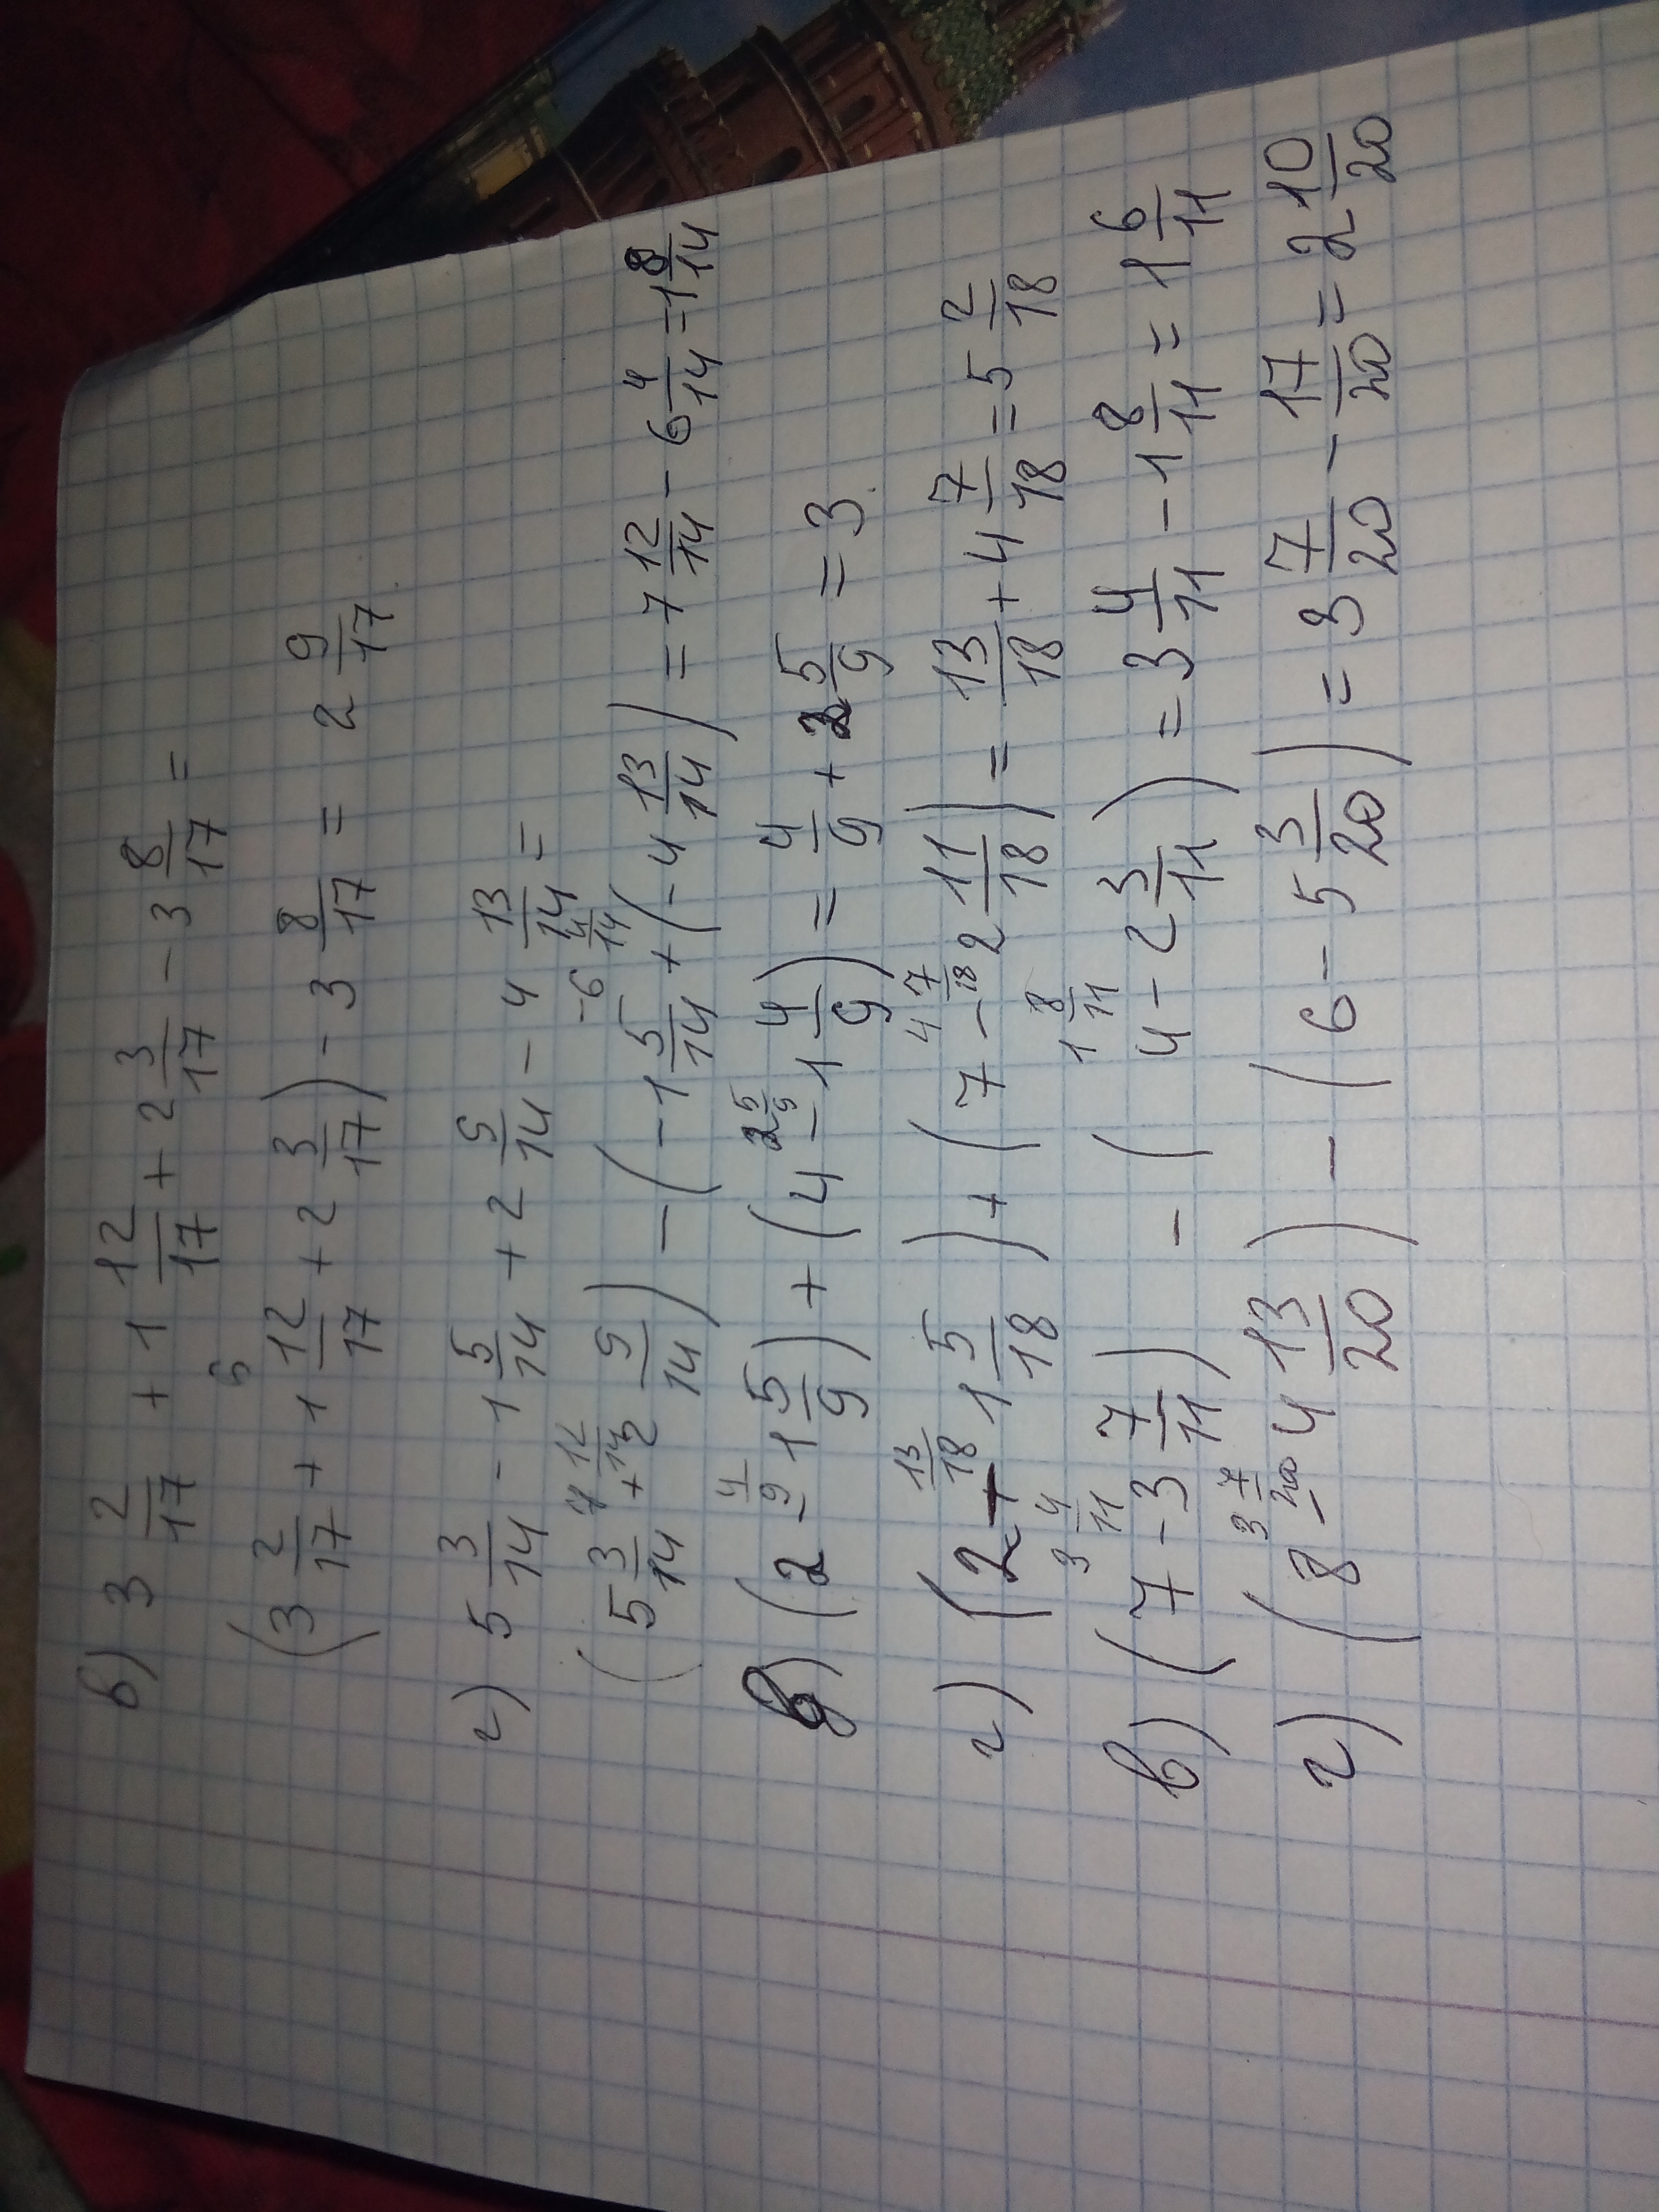 в) 3 2/17 + 1 12/17 + 2 3/17 - 3 8/17 =
(3 2/17 + 1 12/17 + 2 3/17) - 3 8/17 = 2 9/17
г) 5 3/14 - 1 5/14 + 2 9/14 - 4 13/14 =
7 12/14 -6 4/14
(5 3/14 + 2 9/14) - (-1 5/14 + (-4 13/14) = 7 12/14 - 6 4/14 = 1 8/14
4/9 2 5/9
в) (2 - 1 5/9) + (4 - 1 4/9) = 4/9 + 2 5/9 = 3
13/18 4 7/18
г) (2 - 1 5/18) + (7 - 2 11/18) = 13/18 + 4 7/18 = 5 2/18
3 4/11 1 8/11
в) (7 - 3 7/11) - (4 - 2 3/11) = 3 4/11 - 1 8/11 = 1 6/11
3 7/20
г) (8 - 4 13/20) - (6 - 5 3/20) = 3 7/20 - 17/20 = 2 10/20